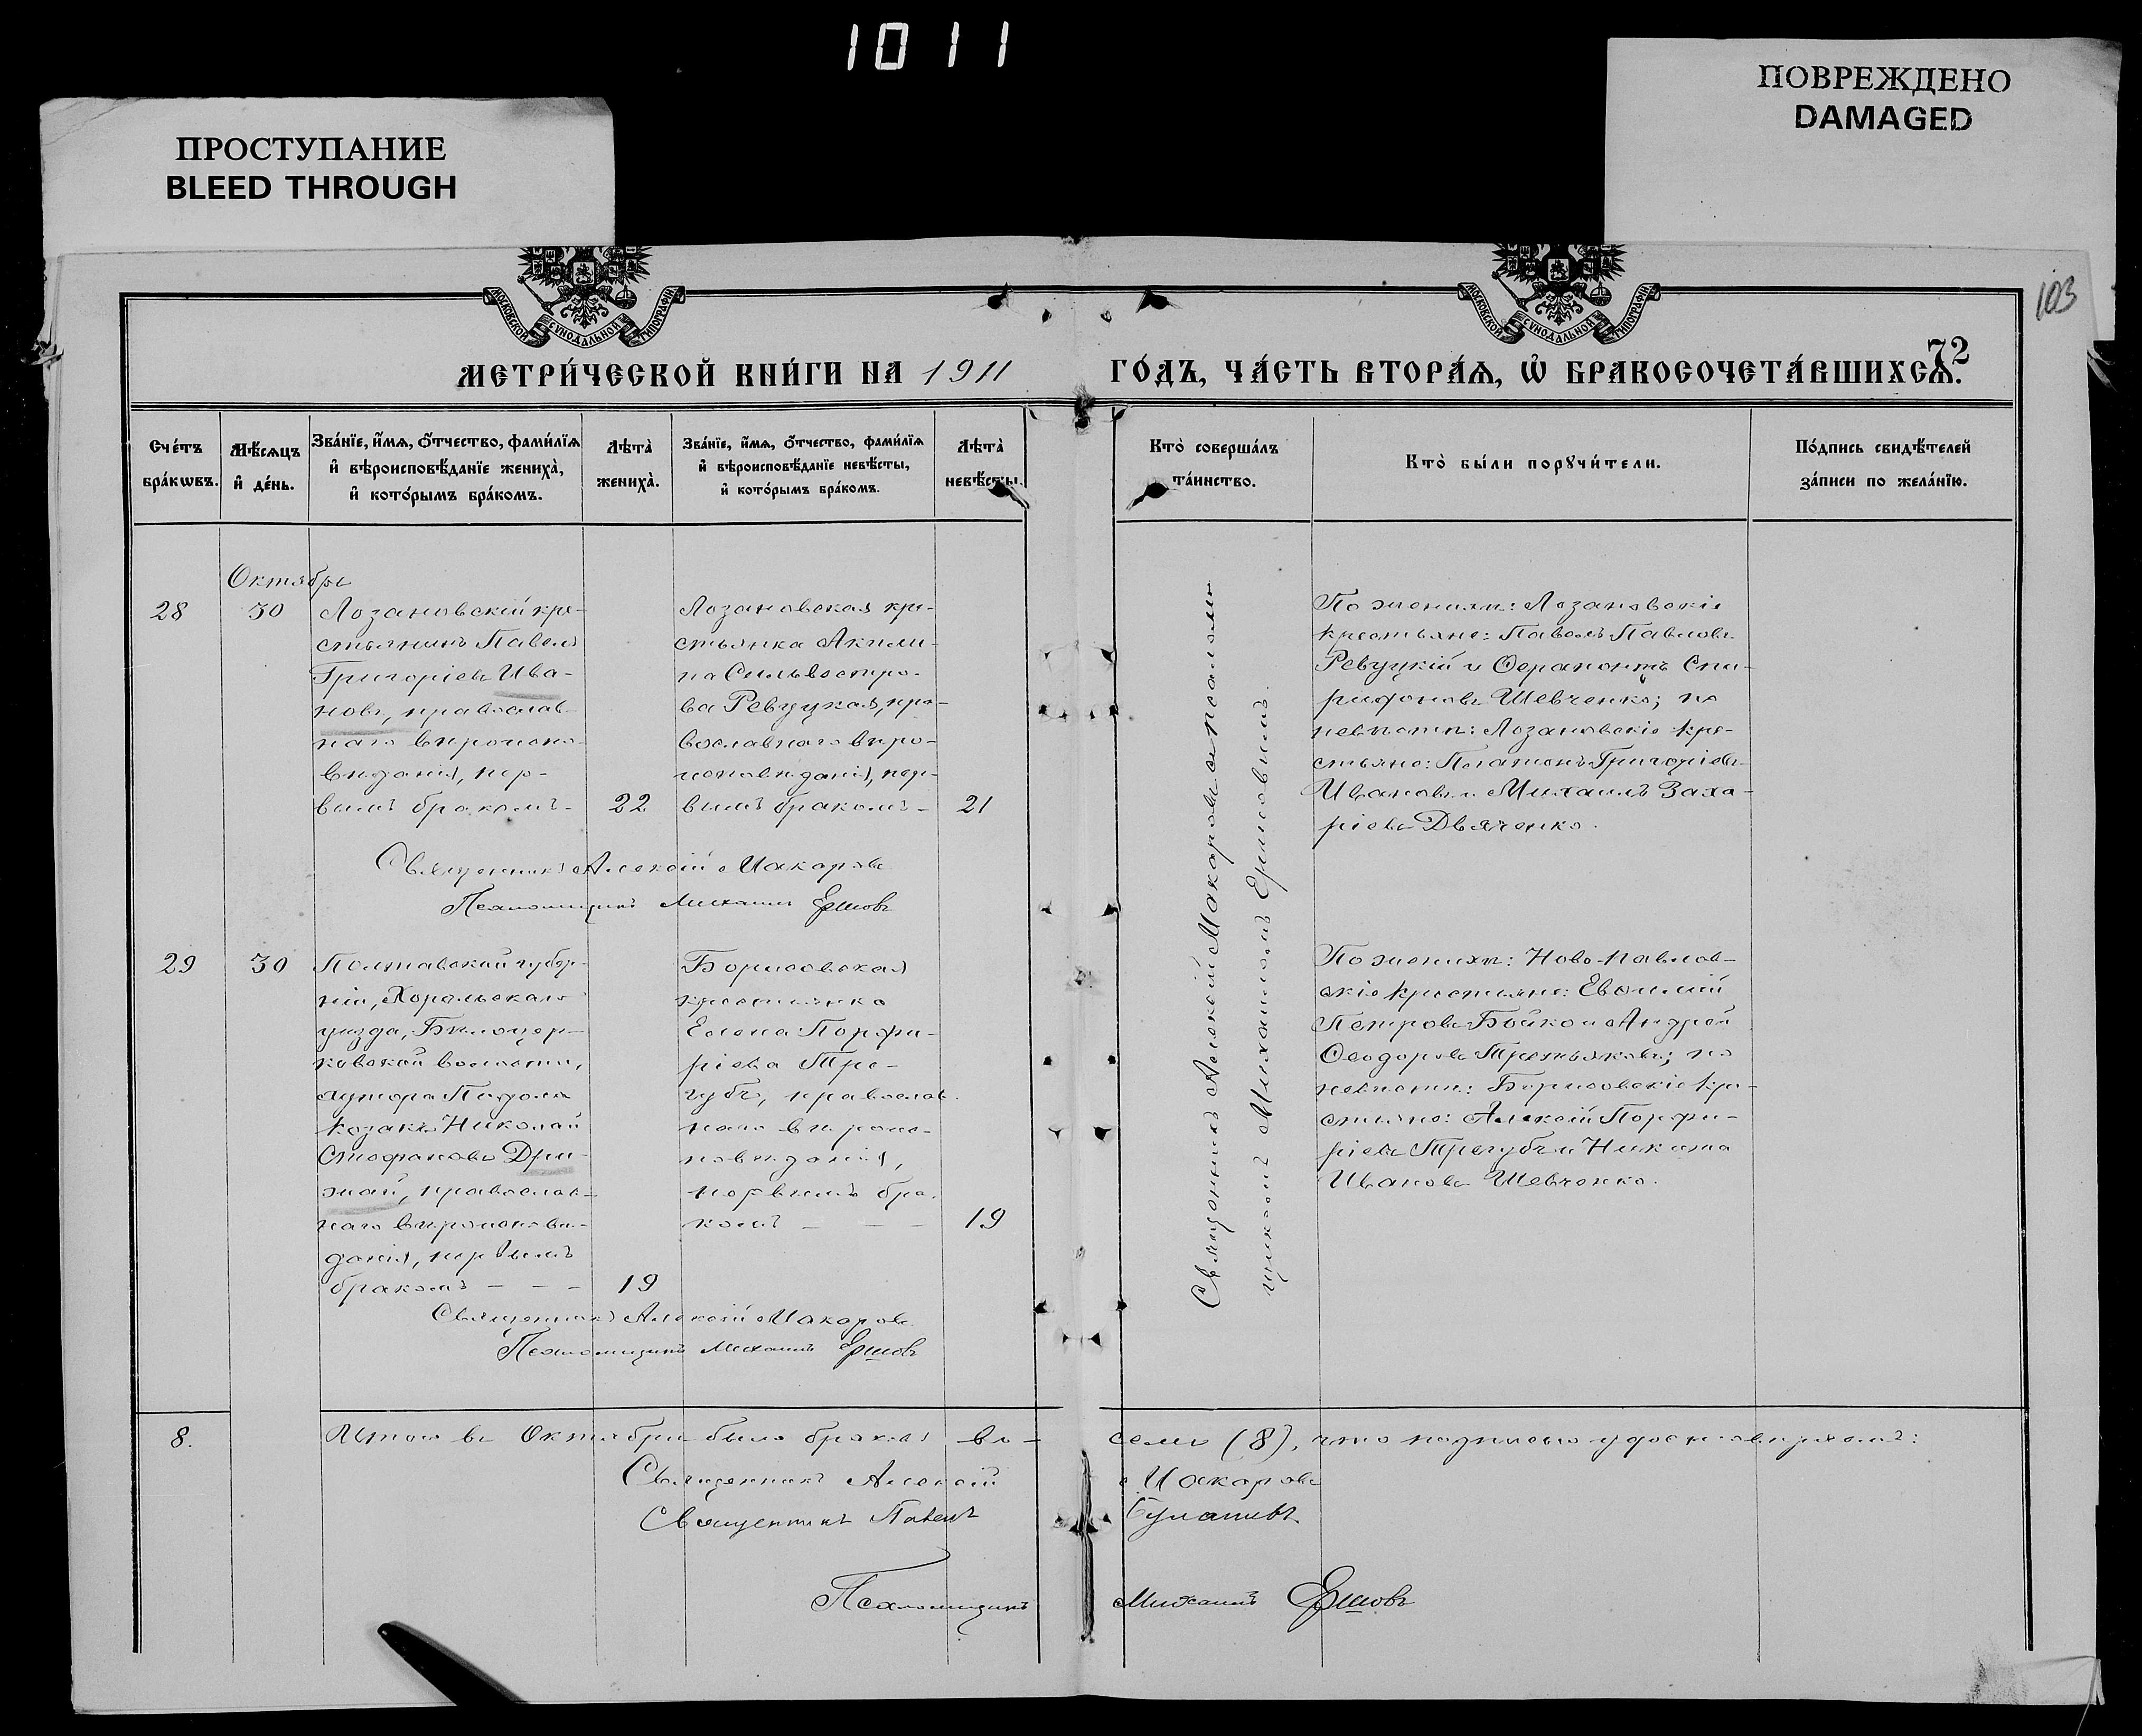 1011
ПРОСТУПАНИЕ
BLEED THROUGH
ПОВРЕЖДЕНО
DAMAGED
103
МОСКОВСКОЙ СѴНОДАЛЬНОЙ ТИПОГРАФІИ
МОСКОВСКОЙ СѴНОДАЛЬНОЙ ТИПОГРАФІИ
72
МЕТРИ́ЧЕСКОЙ КНИ́ГИ НА 1911 ГО́ДЪ, ЧА́СТЬ ВТОРА́Я, Ѡ҆ БРАКОСОЧЕТА́ВШИХСѦ.
Сче́тъ
бра́кѡвъ.
Мѣ́сяцъ
и҆ де́нь.
Зва́нїе, и҆́мя, ѻ҆́тчество, фами́лїя
и҆ вѣроисповѣ́данїе жениха̀,
и҆ кото́рымъ бра́комъ.
Лѣта̀
жениха̀.
Зва́нїе, и҆́мя, ѻ҆́тчество, фами́лїя
и҆ вѣроисповѣ́данїе невѣ́сты,
и҆ кото́рымъ бра́комъ.
Лѣта̀
невѣ́сты.
Кто̀ соверша́лъ
та́инство.
Кто̀ бы́ли порꙋчи́тели.
По́дпись свидѣ́телей
за́писи по жела́нїю.
Октябрь
28
30
Лозановскій кре-
стьянинъ Павелъ
Григоріевъ Ива-
новъ, православ-
наго вѣроиспо-
вѣданія, пер-
вымъ бракомъ-
22
Лозановская кре-
стьянка Акили-
на Сильвестро-
ва Ревуцкая, пра-
вославнаго вѣро-
исповѣданія, пер-
вымъ бракомъ-
21
Священникъ Алексій Макаровъ съ псалом-
щикомъ Михаиломъ Ершовымъ.
По женихѣ: Лозановскіе
крестьяне: Павелъ Павловъ
Ревуцкій и Ѳерапонтъ Спи-
ридоновъ Шевченко; по
невѣстѣ: Лозановскіе кре-
стьяне: Платонъ Григоріевъ
Ивановъ и Михаилъ Заха-
ріевъ Дьяченко.
Священникъ Алексій Макаровъ
Псаломщикъ Михаилъ Ершовъ
29
30
Полтавской губер-
ніи, Хорольскаго
уѣзда, Бѣлоцер-
ковской волости,
хутора
козакъ Николай
Стефановъ Дри-
жай, православ-
наго вѣроисповѣ-
данія, первымъ
бракомъ - - -
19
Борисовская
крестьянка
Елена Порфи-
ріева Тре-
губъ, православ-
наго вѣроис-
повѣданія,
первымъ бра-
комъ - - -
19
По женихѣ: Ново-Павлов-
скіе крестьяне: Евѳимій
Петровъ Бойко и Андрей
Ѳеодоровъ Третьяковъ; по
невѣстѣ: Борисовскіе кре-
стьяне: Алексій Порфи-
ріевъ Трегубъ и Никита
Ивановъ Шевченко.
Священникъ Алексій Макаровъ
Псаломщикъ Михаилъ Ершовъ
8.
Итого въ Октябрѣ было браковъ во-
семь (8), что подписью удостовѣряемъ:
Священникъ Алексій Макаровъ
Священникъ Павелъ
Псаломщикъ Михаилъ Ершовъ